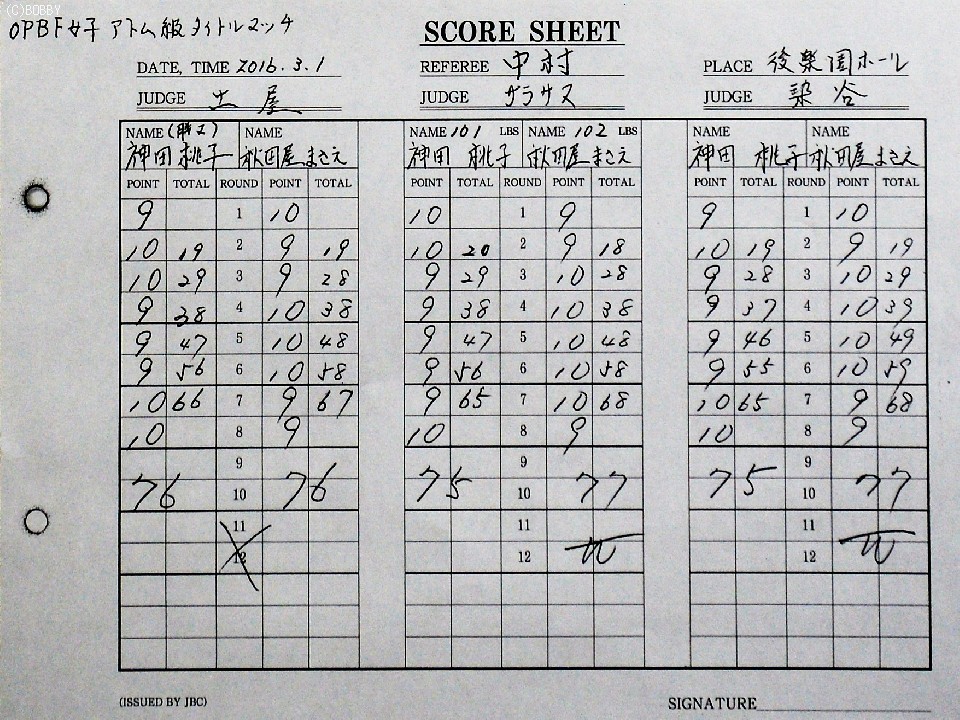 (C)BOBBY
OPBF女子 アトム級タイトルマッチ
SCORE SHEET
DATE, TIME 2016.3.1 REFEREE 中村 PLACE 後楽園ホール
JUDGE 土屋 JUDGE サラサス JUDGE 染谷
NAME NAME NAME 101 LBS NAME 102 LBS NAME NAME
神田 桃子 秋田屋まさえ 神田 桃子 秋田屋まさえ 神田 桃子 秋田屋まさえ
POINT TOTAL ROUND POINT TOTAL POINT TOTAL ROUND POINT TOTAL POINT TOTAL ROUND POINT TOTAL
9 1 10 10 1 9 9 1 10
10 19 2 9 19 10 20 2 9 18 10 19 2 9 19
10 29 3 9 28 9 29 3 10 28 9 28 3 10 29
9 38 4 10 38 9 38 4 10 38 9 37 4 10 39
9 47 5 10 48 9 47 5 10 48 9 46 5 10 49
9 56 6 10 58 9 56 6 10 58 9 55 6 10 59
10 66 7 9 67 9 65 7 10 68 10 65 7 9 68
10 8 9 10 8 9 10 8 9
9 9 9
76 10 76 75 10 77 75 10 77
11 11 11
12 12 12
(ISSUED BY JBC) SIGNATURE